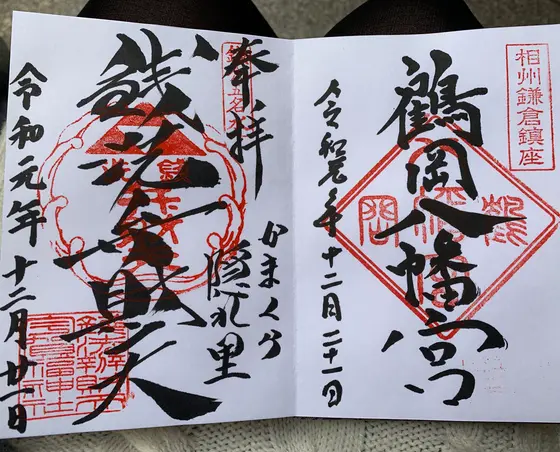 相州鎌倉鎮座
鶴岡八幡宮
令和元年十二月二十一日
奉拝
かまくら
隠れ里
銭洗弁財天
令和元年十二月廿一日